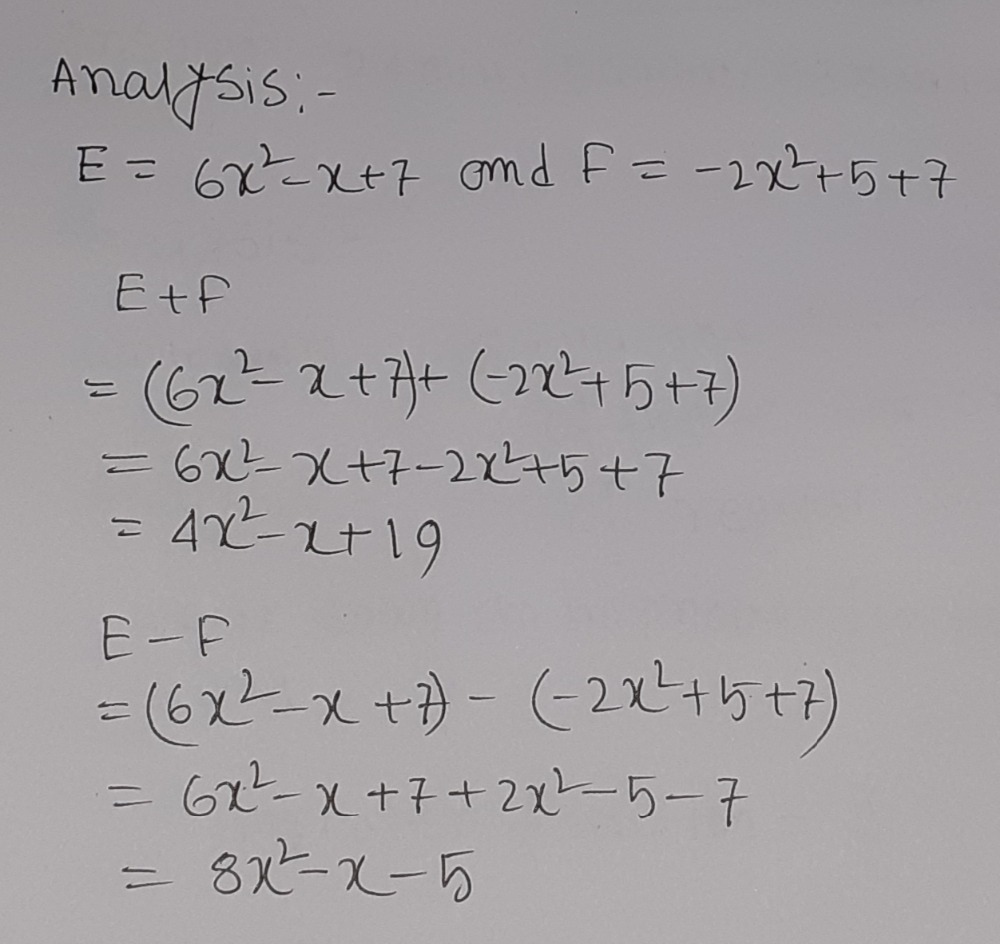 Analysis:-
E = 6x²-x+7 omd F = -2x²+5+7
E+F
= (6x²-x+7)+ (-2x²+5+7)
= 6x²-x+7-2x²+5+7
= 4x²-x+19
E-F
=(6x²-x+7) - (-2x²+5+7)
= 6x²-x+7+2x²-5-7
= 8x²-x-5